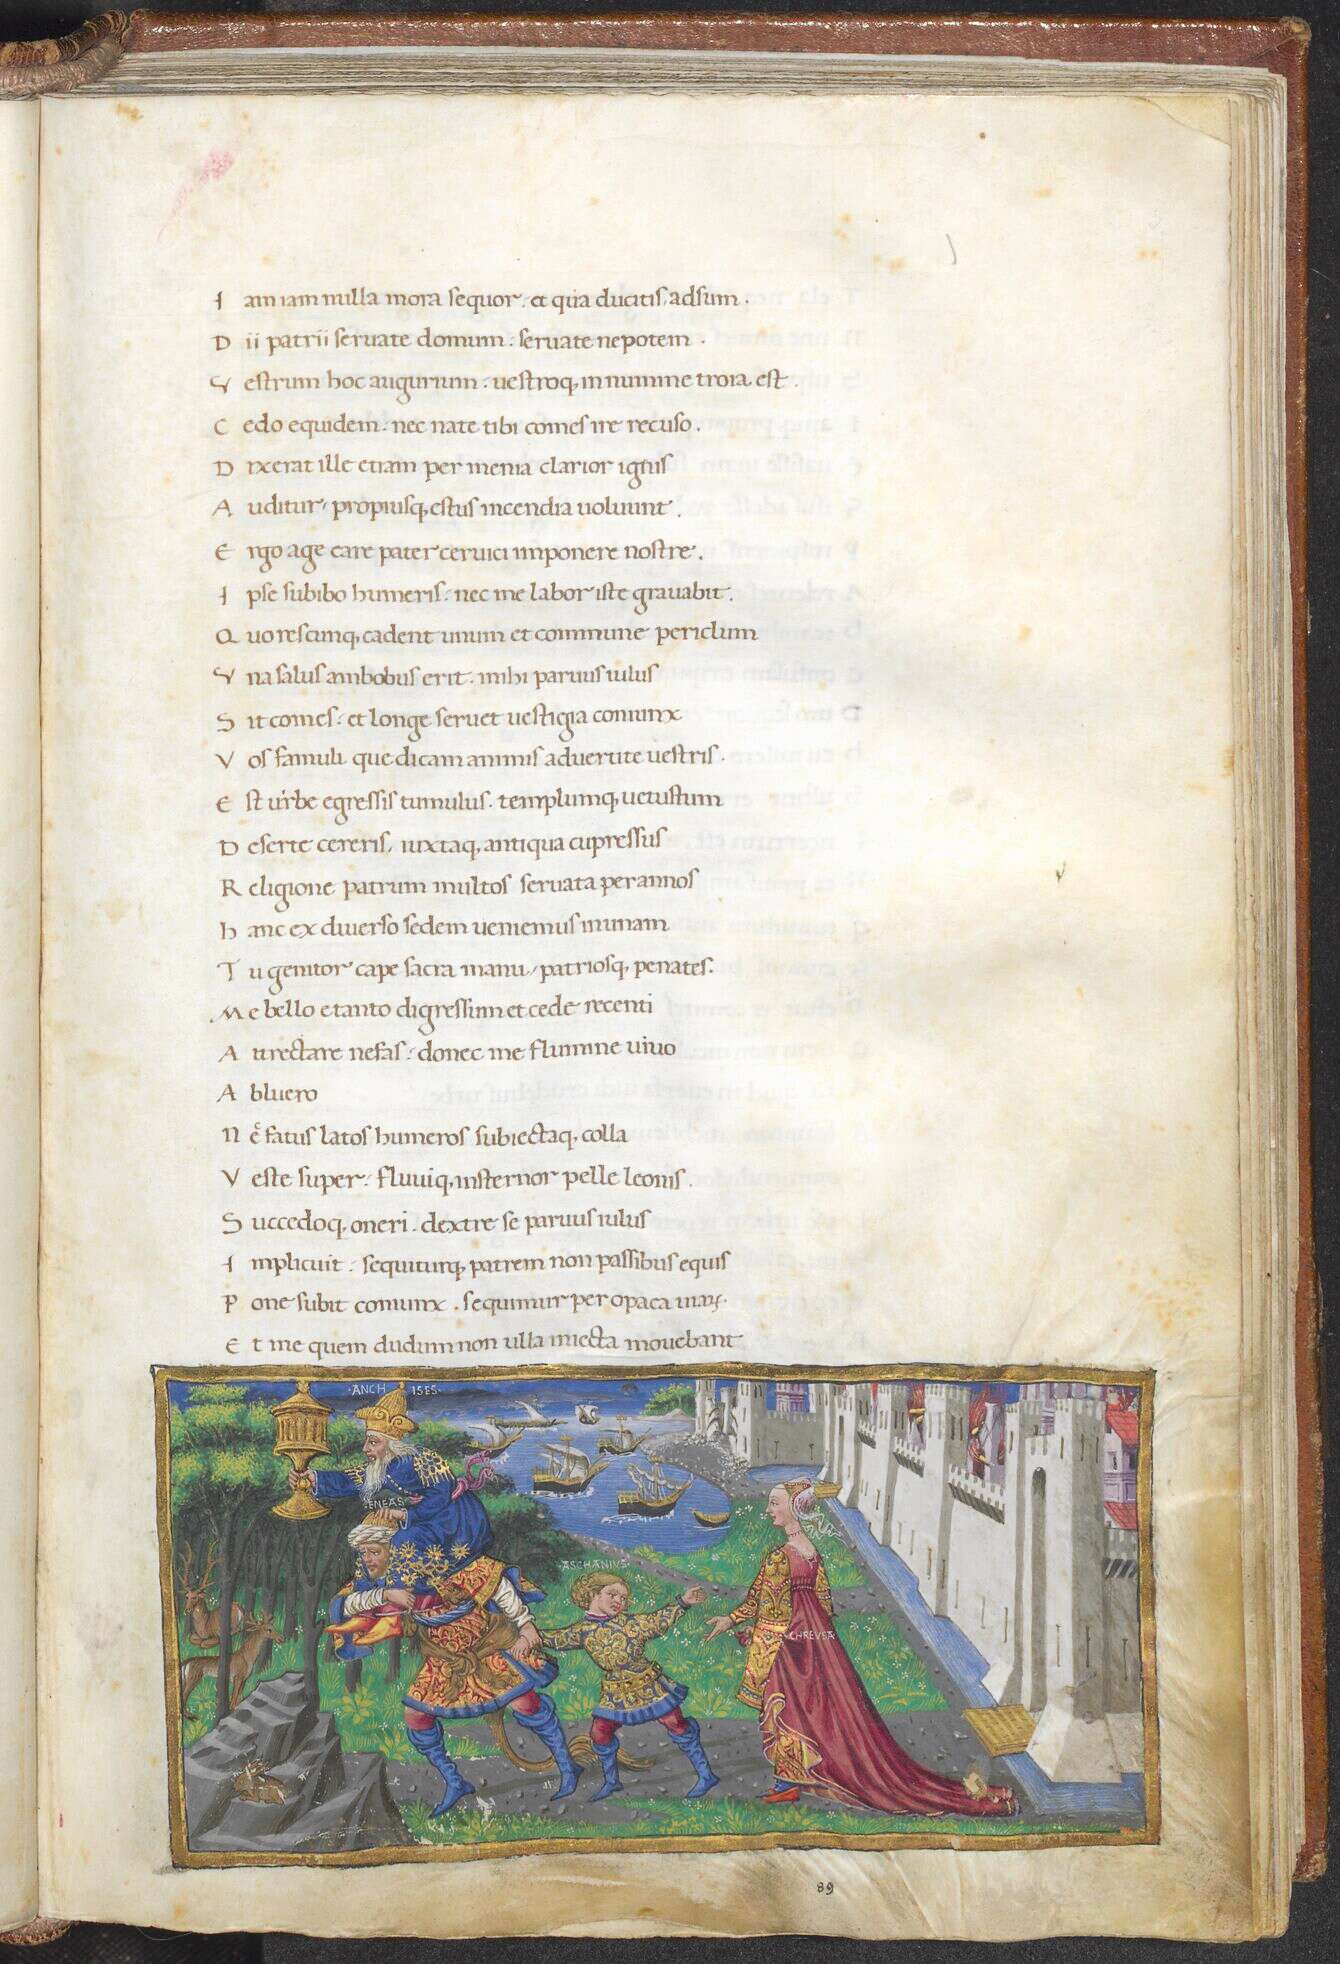 I am iam nulla mora sequor. et qua ducitis, adsum.
D ii patrii seruate domum. seruate nepotem.
V estrum hoc augurium. uestroq, in numine troia est.
C edo equidem. nec nate tibi comes ire recuso.
D ixerat ille etiam per menia clarior ignis
A uditur, propiusq, estus incendia uoluunt.
E rgo age care pater ceruici imponere nostre.
I pse subibo humeris. nec me labor iste grauabit.
Q uo res cunq, cadent unum et commune periclum
V na salus ambobus erit. mihi paruus iulus
S it comes. et longe seruet uestigia coniunx
V os famuli que dicam animis aduertite uestris.
E st urbe egressis tumulus. templumq, uetustum
D eserte cereris, iuxtaq, antiqua cupressus
R eligione patrum multos seruata per annos
H anc ex diuerso sedem ueniemus in unam
T u genitor cape sacra manu, patriosq, penates.
M e bello e tanto digressum et cede recenti
A ttrectare nefas. donec me flumine uiuo
A bluero
H ec fatus latos humeros subiectaq, colla
V este super. fluuiq, insternor pelle leonis.
S uccedoq, oneri. dextre se paruus iulus
I mplicuit. sequiturq, patrem non passibus equis
P one subit coniunx. sequimur per opaca uiaꝝ.
E t me quem dudum non ulla iniecta mouebant
·ANCHISES·
·ENEAS·
·ASCHANIVS·
CHREVSA
89